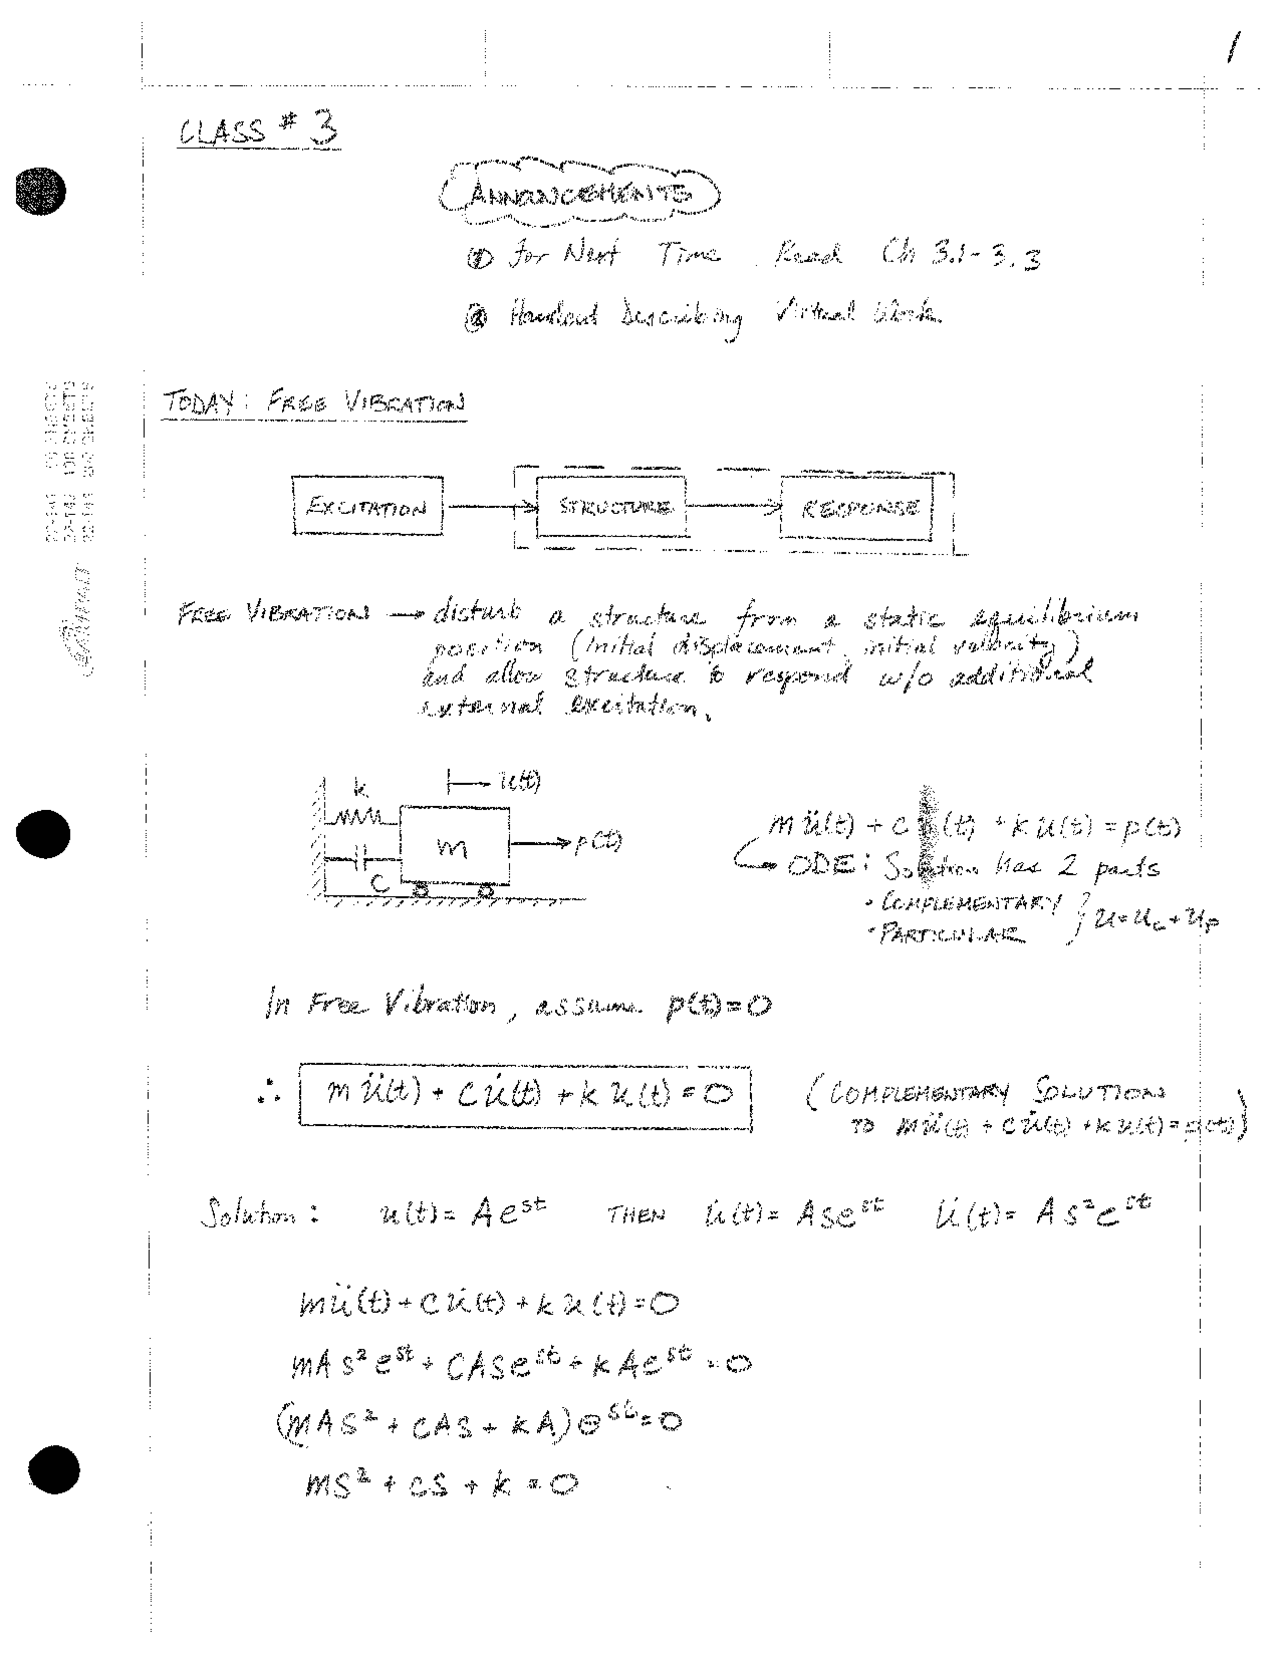 1
CLASS # 3
ANNOUNCEMENTS
① For Next Time Read Ch 3.1-3.3
② Handout Describing Virtual Work.
TODAY: FREE VIBRATION
EXCITATION
STRUCTURE
RESPONSE
FREE VIBRATION → disturb a structure from a static equilibrium
position (initial displacement, initial velocity)
and allow structure to respond w/o additional
external excitation.
k
u(t)
m
p(t)
c
mü(t) + c (t) + ku(t) = p(t)
ODE: Solution has 2 parts
• COMPLEMENTARY
• PARTICULAR
} u = u_c + u_p
In Free Vibration, assume p(t)=0
∴ mü(t) + cu̇(t) + ku(t) = 0
(COMPLEMENTARY SOLUTION
TO mü(t) + cu̇(t) + ku(t) = p(t))
Solution: u(t) = Ae^st THEN u̇(t) = Ase^st ü(t) = As²e^st
mü(t) + cu̇(t) + ku(t) = 0
mAs²e^st + cAse^st + kAe^st = 0
(mAs² + cAs + kA)e^st = 0
ms² + cs + k = 0